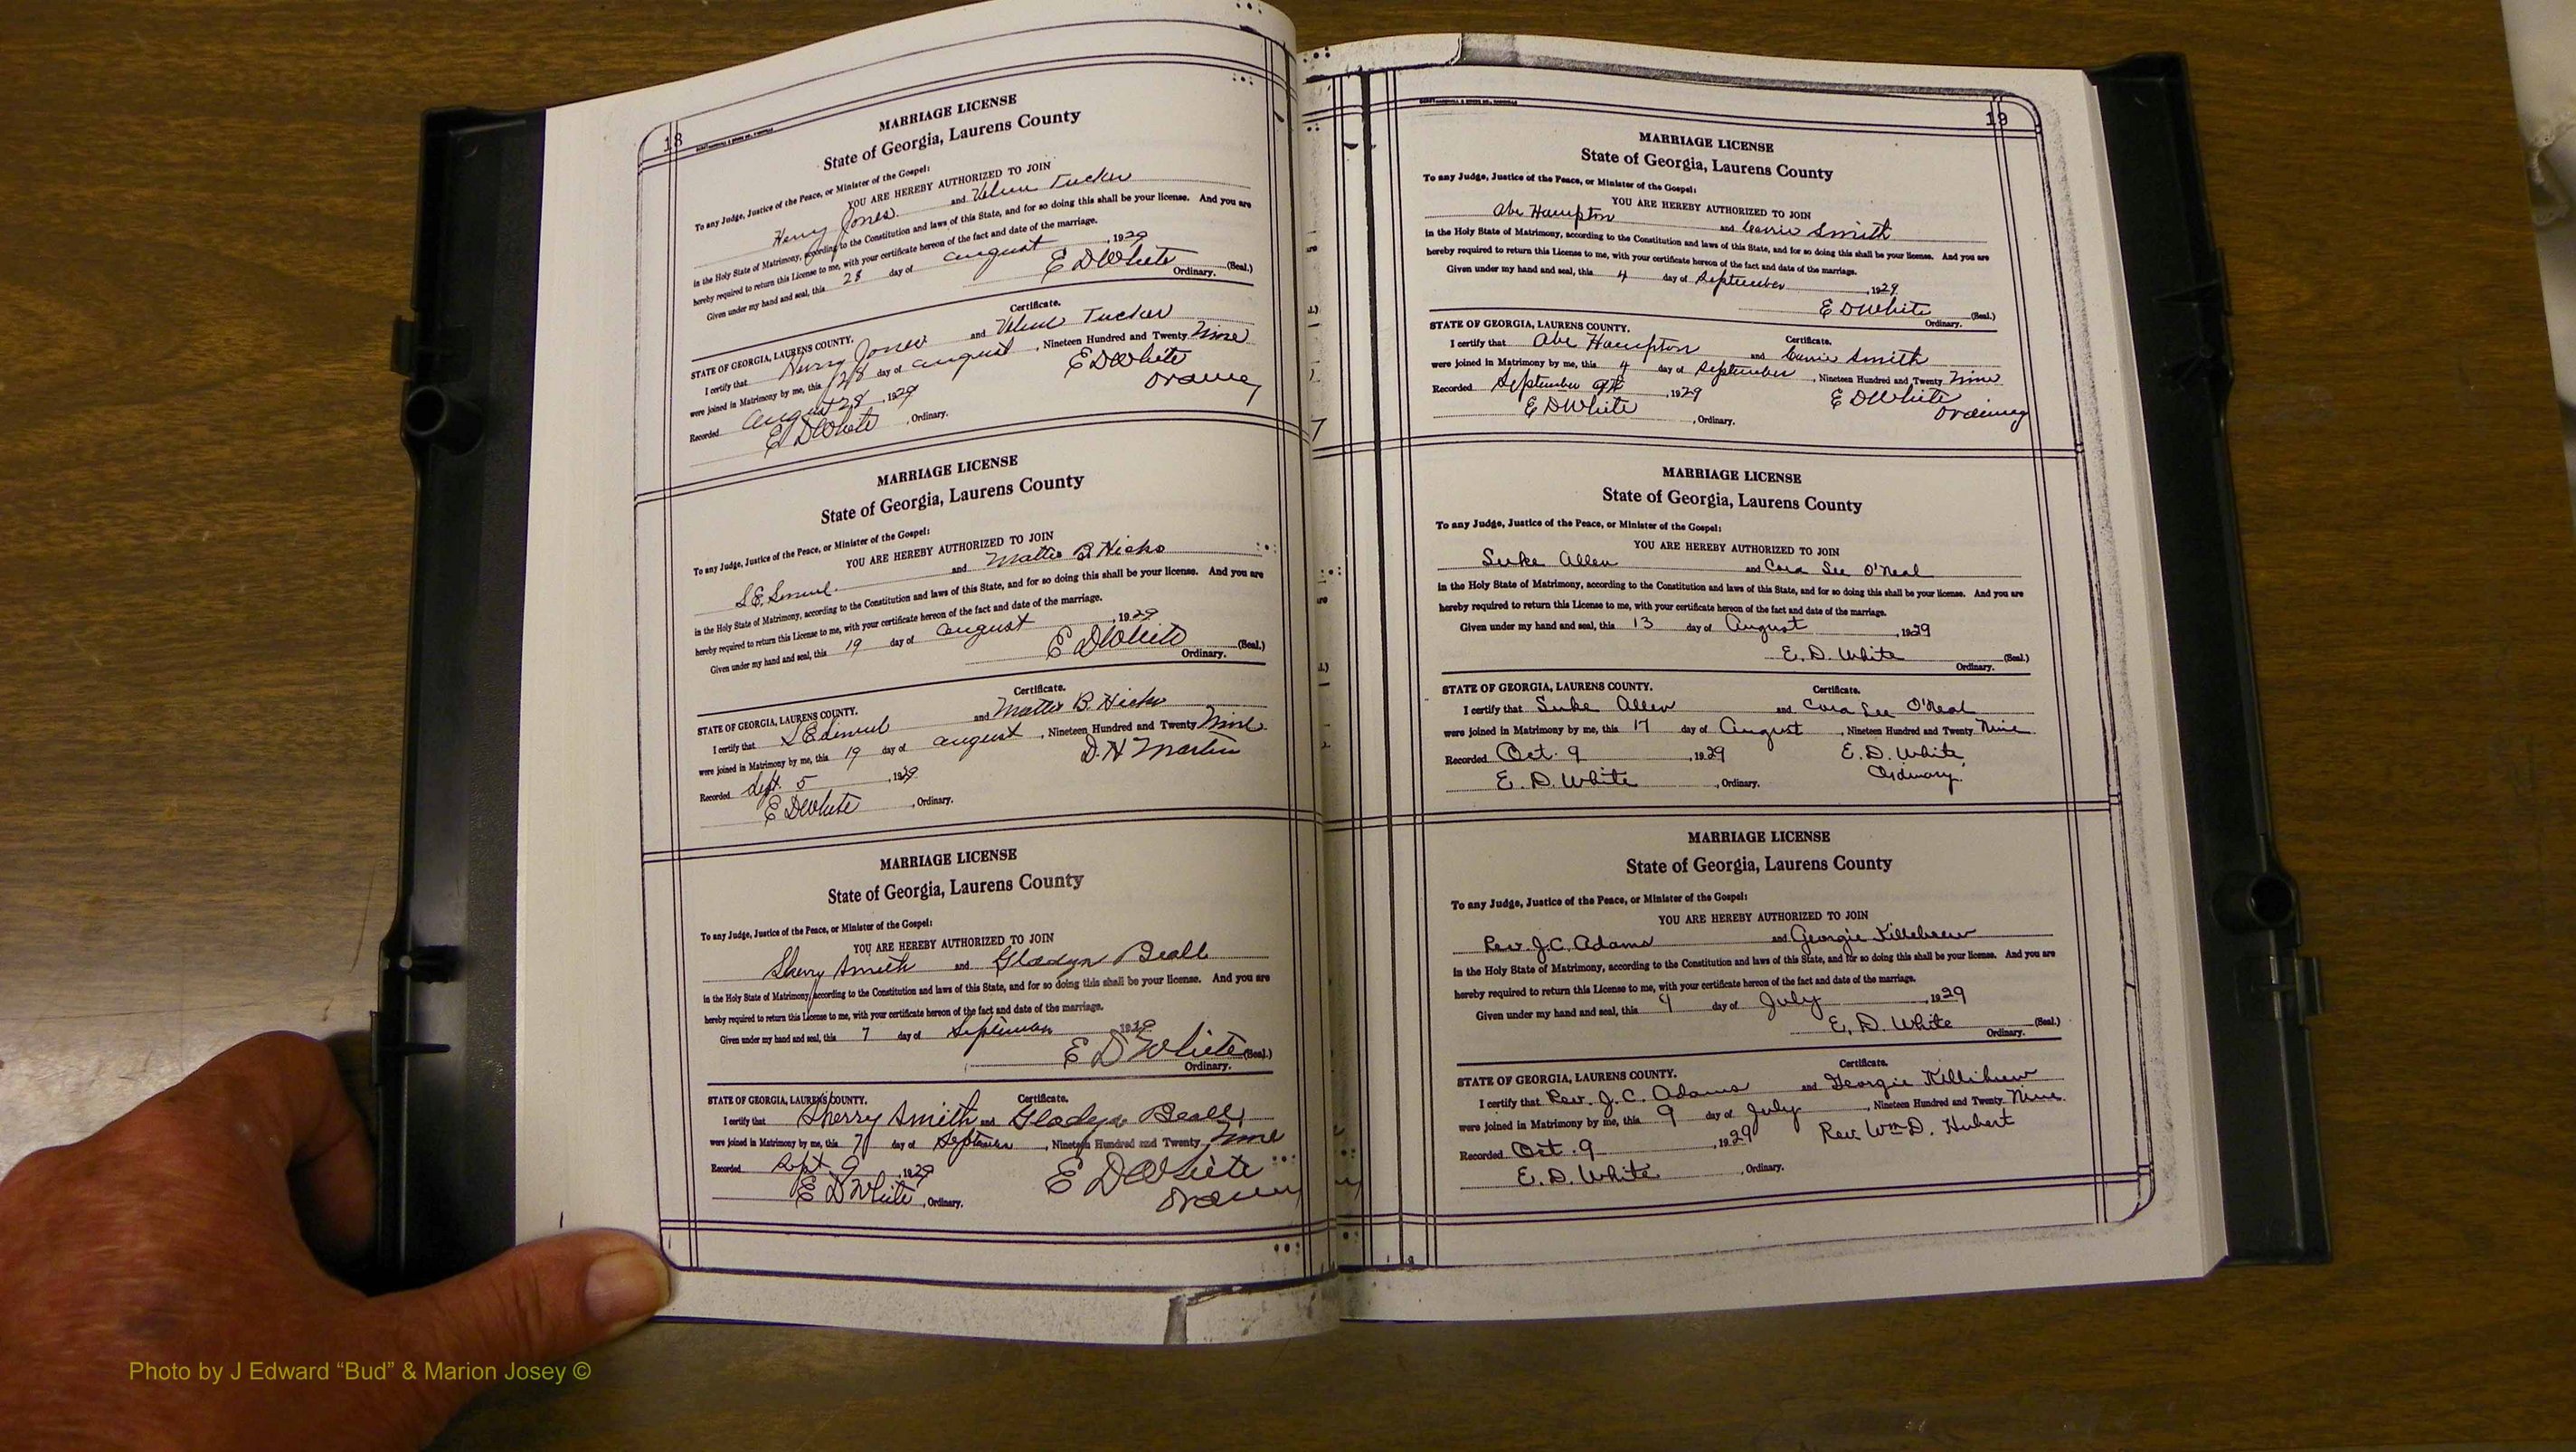 18
MARRIAGE LICENSE
State of Georgia, Laurens County
To any Judge, Justice of the Peace, or Minister of the Gospel:
YOU ARE HEREBY AUTHORIZED TO JOIN
Henry Jones and Velma Tucker
in the Holy State of Matrimony, according to the Constitution and laws of this State, and for so doing this shall be your license. And you are
hereby required to return this License to me, with your certificate hereon of the fact and date of the marriage.
Given under my hand and seal, this 28 day of august, 1929
E D White (Seal.)
Ordinary.
Certificate.
STATE OF GEORGIA, LAURENS COUNTY.
I certify that Henry Jones and Velma Tucker
were joined in Matrimony by me, this 28 day of august, Nineteen Hundred and Twenty Nine
Recorded August 28, 1929 E D White
E D White, Ordinary.
MARRIAGE LICENSE
State of Georgia, Laurens County
To any Judge, Justice of the Peace, or Minister of the Gospel:
YOU ARE HEREBY AUTHORIZED TO JOIN
and Mattie B. Hicks
in the Holy State of Matrimony, according to the Constitution and laws of this State, and for so doing this shall be your license. And you are
hereby required to return this License to me, with your certificate hereon of the fact and date of the marriage.
Given under my hand and seal, this 19 day of august, 1929
E D White (Seal.)
Ordinary.
Certificate.
STATE OF GEORGIA, LAURENS COUNTY.
I certify that and Mattie B. Hicks
were joined in Matrimony by me, this 19 day of august, Nineteen Hundred and Twenty Nine
Recorded Sept. 5, 1929 D. H Martin
E D White, Ordinary.
MARRIAGE LICENSE
State of Georgia, Laurens County
To any Judge, Justice of the Peace, or Minister of the Gospel:
YOU ARE HEREBY AUTHORIZED TO JOIN
Sherry Smith and Gladyn Beall
in the Holy State of Matrimony, according to the Constitution and laws of this State, and for so doing this shall be your license. And you are
hereby required to return this License to me, with your certificate hereon of the fact and date of the marriage.
Given under my hand and seal, this 7 day of September 1929
E D White (Seal.)
Ordinary.
STATE OF GEORGIA, LAURENS COUNTY. Certificate.
I certify that Sherry Smith and Gladyn Beall
were joined in Matrimony by me, this 7 day of September, Nineteen Hundred and Twenty Nine
Recorded Sept. 9, 1929 E D White
E D White, Ordinary.
19
MARRIAGE LICENSE
State of Georgia, Laurens County
To any Judge, Justice of the Peace, or Minister of the Gospel:
YOU ARE HEREBY AUTHORIZED TO JOIN
Abe Hampton and Carrie Smith
in the Holy State of Matrimony, according to the Constitution and laws of this State, and for so doing this shall be your license. And you are
hereby required to return this License to me, with your certificate hereon of the fact and date of the marriage.
Given under my hand and seal, this 4 day of September, 1929
E D White (Seal.)
Ordinary.
STATE OF GEORGIA, LAURENS COUNTY. Certificate.
I certify that Abe Hampton and Carrie Smith
were joined in Matrimony by me, this 4 day of September, Nineteen Hundred and Twenty Nine
Recorded September 9th, 1929 E D White
E D White, Ordinary.
MARRIAGE LICENSE
State of Georgia, Laurens County
To any Judge, Justice of the Peace, or Minister of the Gospel:
YOU ARE HEREBY AUTHORIZED TO JOIN
Suke Allen and Cora Lee O'Neal
in the Holy State of Matrimony, according to the Constitution and laws of this State, and for so doing this shall be your license. And you are
hereby required to return this License to me, with your certificate hereon of the fact and date of the marriage.
Given under my hand and seal, this 13 day of August, 1929
E. D. White (Seal.)
Ordinary.
STATE OF GEORGIA, LAURENS COUNTY. Certificate.
I certify that Suke Allen and Cora Lee O'Neal
were joined in Matrimony by me, this 17 day of August, Nineteen Hundred and Twenty Nine
Recorded Oct. 9, 1929 E. D. White
Ordinary.
E. D. White, Ordinary.
MARRIAGE LICENSE
State of Georgia, Laurens County
To any Judge, Justice of the Peace, or Minister of the Gospel:
YOU ARE HEREBY AUTHORIZED TO JOIN
Rev. J. C. Adams and Georgie Killebrew
in the Holy State of Matrimony, according to the Constitution and laws of this State, and for so doing this shall be your license. And you are
hereby required to return this License to me, with your certificate hereon of the fact and date of the marriage.
Given under my hand and seal, this day of July, 1929
E. D. White (Seal.)
Ordinary.
Certificate.
STATE OF GEORGIA, LAURENS COUNTY.
I certify that Rev. J. C. Adams and Georgie
were joined in Matrimony by me, this 9 day of July, Nineteen Hundred and Twenty Nine
Recorded Oct. 9, 1929 Rev. Wm D. Hubert
E. D. White, Ordinary.
Photo by J Edward “Bud” & Marion Josey ©